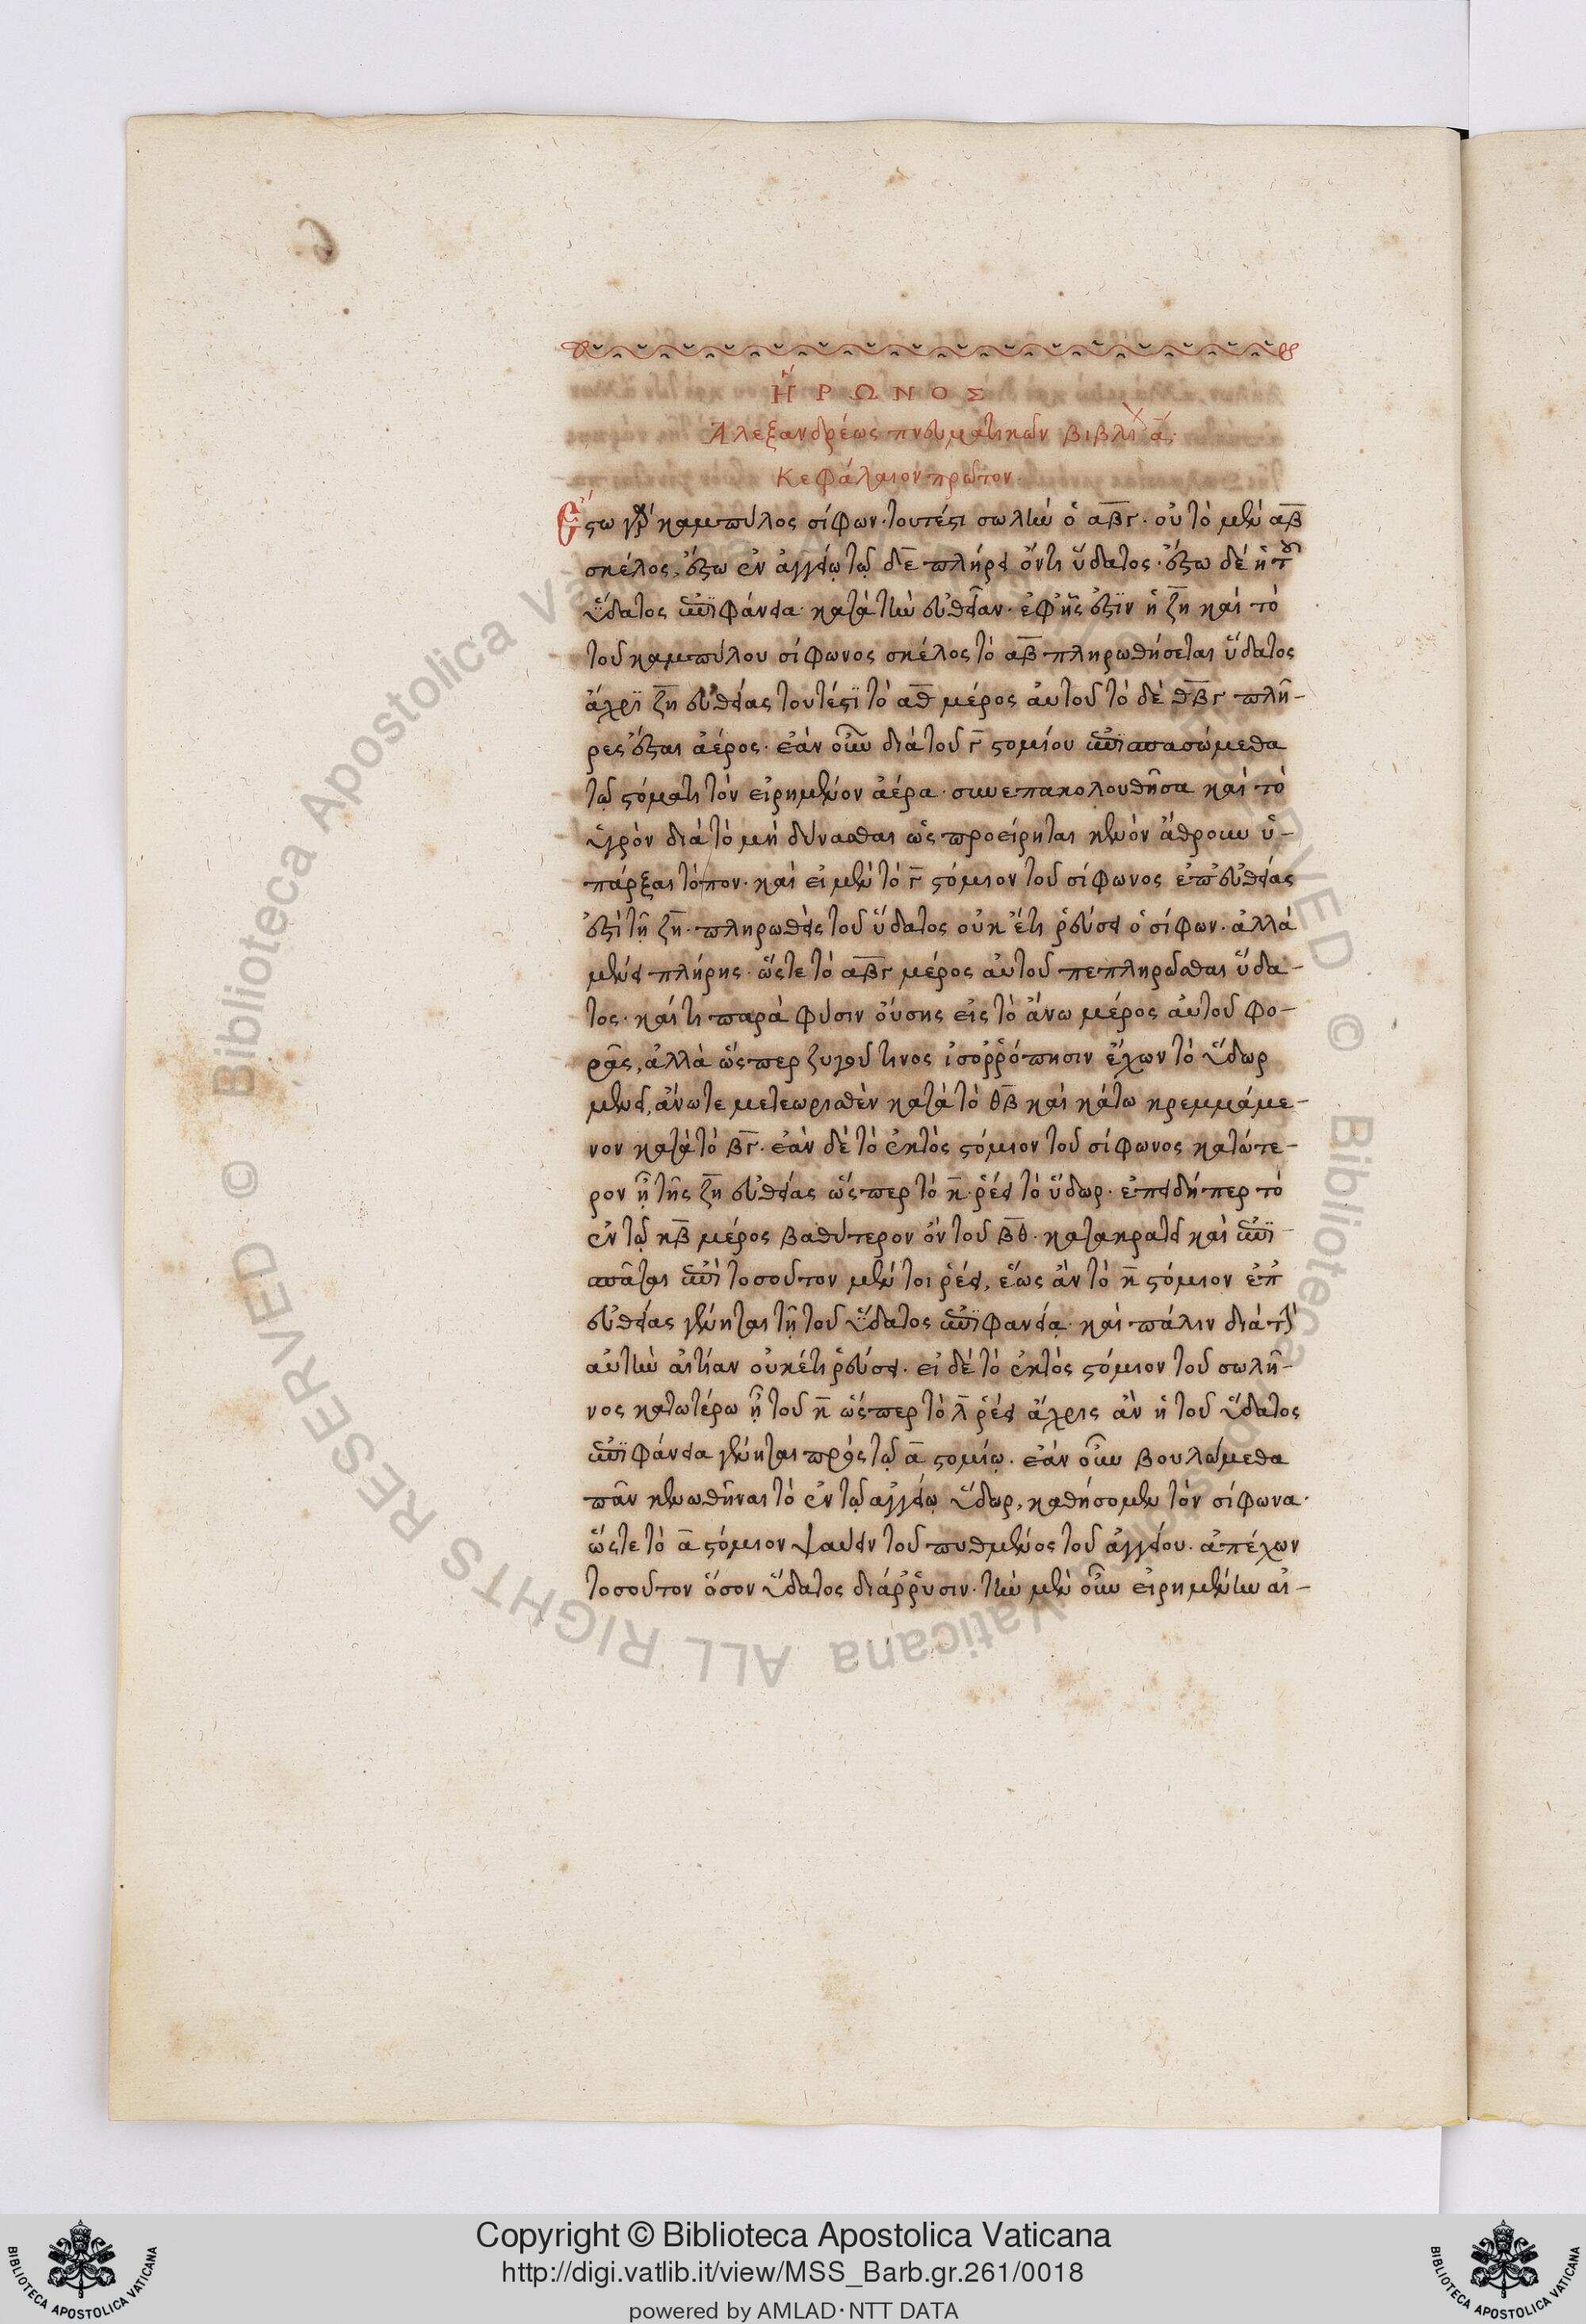 ἭΡΩΝΟΣ
Ἀλεξανδρέως πνευματικῶν βιβλί α΄.
Κεφάλαιον πρῶτον.
Ἔστω γὰρ καμπύλος σίφων· τουτέστι σωλὴν ὁ αβγ· οὗ τὸ μὲν αβ
σκέλος, ἔστω ἐν ἀγγείῳ τῷ δε πλήρει ὄντι ὕδατος· ἔστω δὲ ἡ τοῦ
ὕδατος ἐπιφάνεια κατὰ τὴν εὐθεῖαν· ἐφ' ἧς ἐστὶν ἡ ζη καὶ τὸ
τοῦ καμπύλου σίφωνος σκέλος τὸ αβ πληρωθήσεται ὕδατος
ἄχρι ζη εὐθείας τουτέστι τὸ αθ μέρος αὐτοῦ τὸ δὲ θβγ πλῆ-
ρες ἔσται ἀέρος· ἐὰν οὖν διὰ τοῦ γ στομίου ἐπισπασώμεθα
τῷ στόματι τὸν εἰρημένον ἀέρα· συνεπακολουθῆσα καὶ τὸ
ὑγρὸν διὰ τὸ μὴ δύνασθαι ὡς προείρηται κενὸν ἄθρουν ὑ-
πάρξαι τόπον· καὶ εἰ μὲν τὸ γ στόμιον τοῦ σίφωνος ἐπ' εὐθείας
ἐστὶ τῇ ζη· πληρωθεὶς τοῦ ὕδατος οὐκ ἔτι ῥεύσει ὁ σίφων· ἀλλὰ
μένει πλήρης· ὥστε τὸ αβγ μέρος αὐτοῦ πεπληρῶσθαι ὕδα-
τος· καί τι παρὰ φύσιν οὔσης εἰς τὸ ἄνω μέρος αὐτοῦ φο-
ρᾶς, ἀλλὰ ὥσπερ ζυγοῦ τινος ἰσοῤῥόπησιν ἔχων τὸ ὕδωρ
μένει, ἄνω τε μετεωρισθὲν κατὰ τὸ θβ καὶ κάτω κρεμμάμε-
νον κατὰ τὸ βγ· ἐὰν δὲ τὸ ἐκτὸς στόμιον τοῦ σίφωνος κατώτε-
ρον ᾖ τῆς ζη εὐθείας ὥσπερ τὸ κ· ῥέει τὸ ὕδωρ· ἐπειδήπερ τὸ
ἐν τῷ κβ μέρος βαθύτερον ὂν τοῦ βθ· κατακρατεῖ καὶ ἐπι-
σπᾶται ἐπὶ τοσοῦτον μέν τοι ῥέει, ἕως ἂν τὸ κ στόμιον ἐπ'
εὐθείας γένηται τῇ τοῦ ὕδατος ἐπιφανείᾳ· καὶ πάλιν διὰ τὴν
αὐτὴν αἰτίαν οὐκέτι ῥεύσει· εἰ δὲ τὸ ἐκτὸς στόμιον τοῦ σωλῆ-
νος κατωτέρω ᾖ τοῦ κ ὥσπερ τὸ λ ῥέει ἄχρις ἂν ἡ τοῦ ὕδατος
ἐπιφάνεια γένηται πρὸς τῷ α στομίῳ· ἐὰν οὖν βουλώμεθα
πᾶν κενωθῆναι τὸ ἐν τῷ ἀγγείῳ ὕδωρ, καθήσομεν τὸν σίφωνα·
ὥστε τὸ α στόμιον ψαύειν τοῦ πυθμένος τοῦ ἀγγείου· ἀπέχων
τοσοῦτον ὅσον ὕδατος διάῤῥυσιν· τὴν μὲν οὖν εἰρημένην αἰ-
Copyright © Biblioteca Apostolica Vaticana
http://digi.vatlib.it/view/MSS_Barb.gr.261/0018
powered by AMLAD·NTT DATA
BIBLIOTECA APOSTOLICA VATICANA
BIBLIOTECA APOSTOLICA VATICANA
© Biblioteca Apostolica Vaticana ALL RIGHTS RESERVED